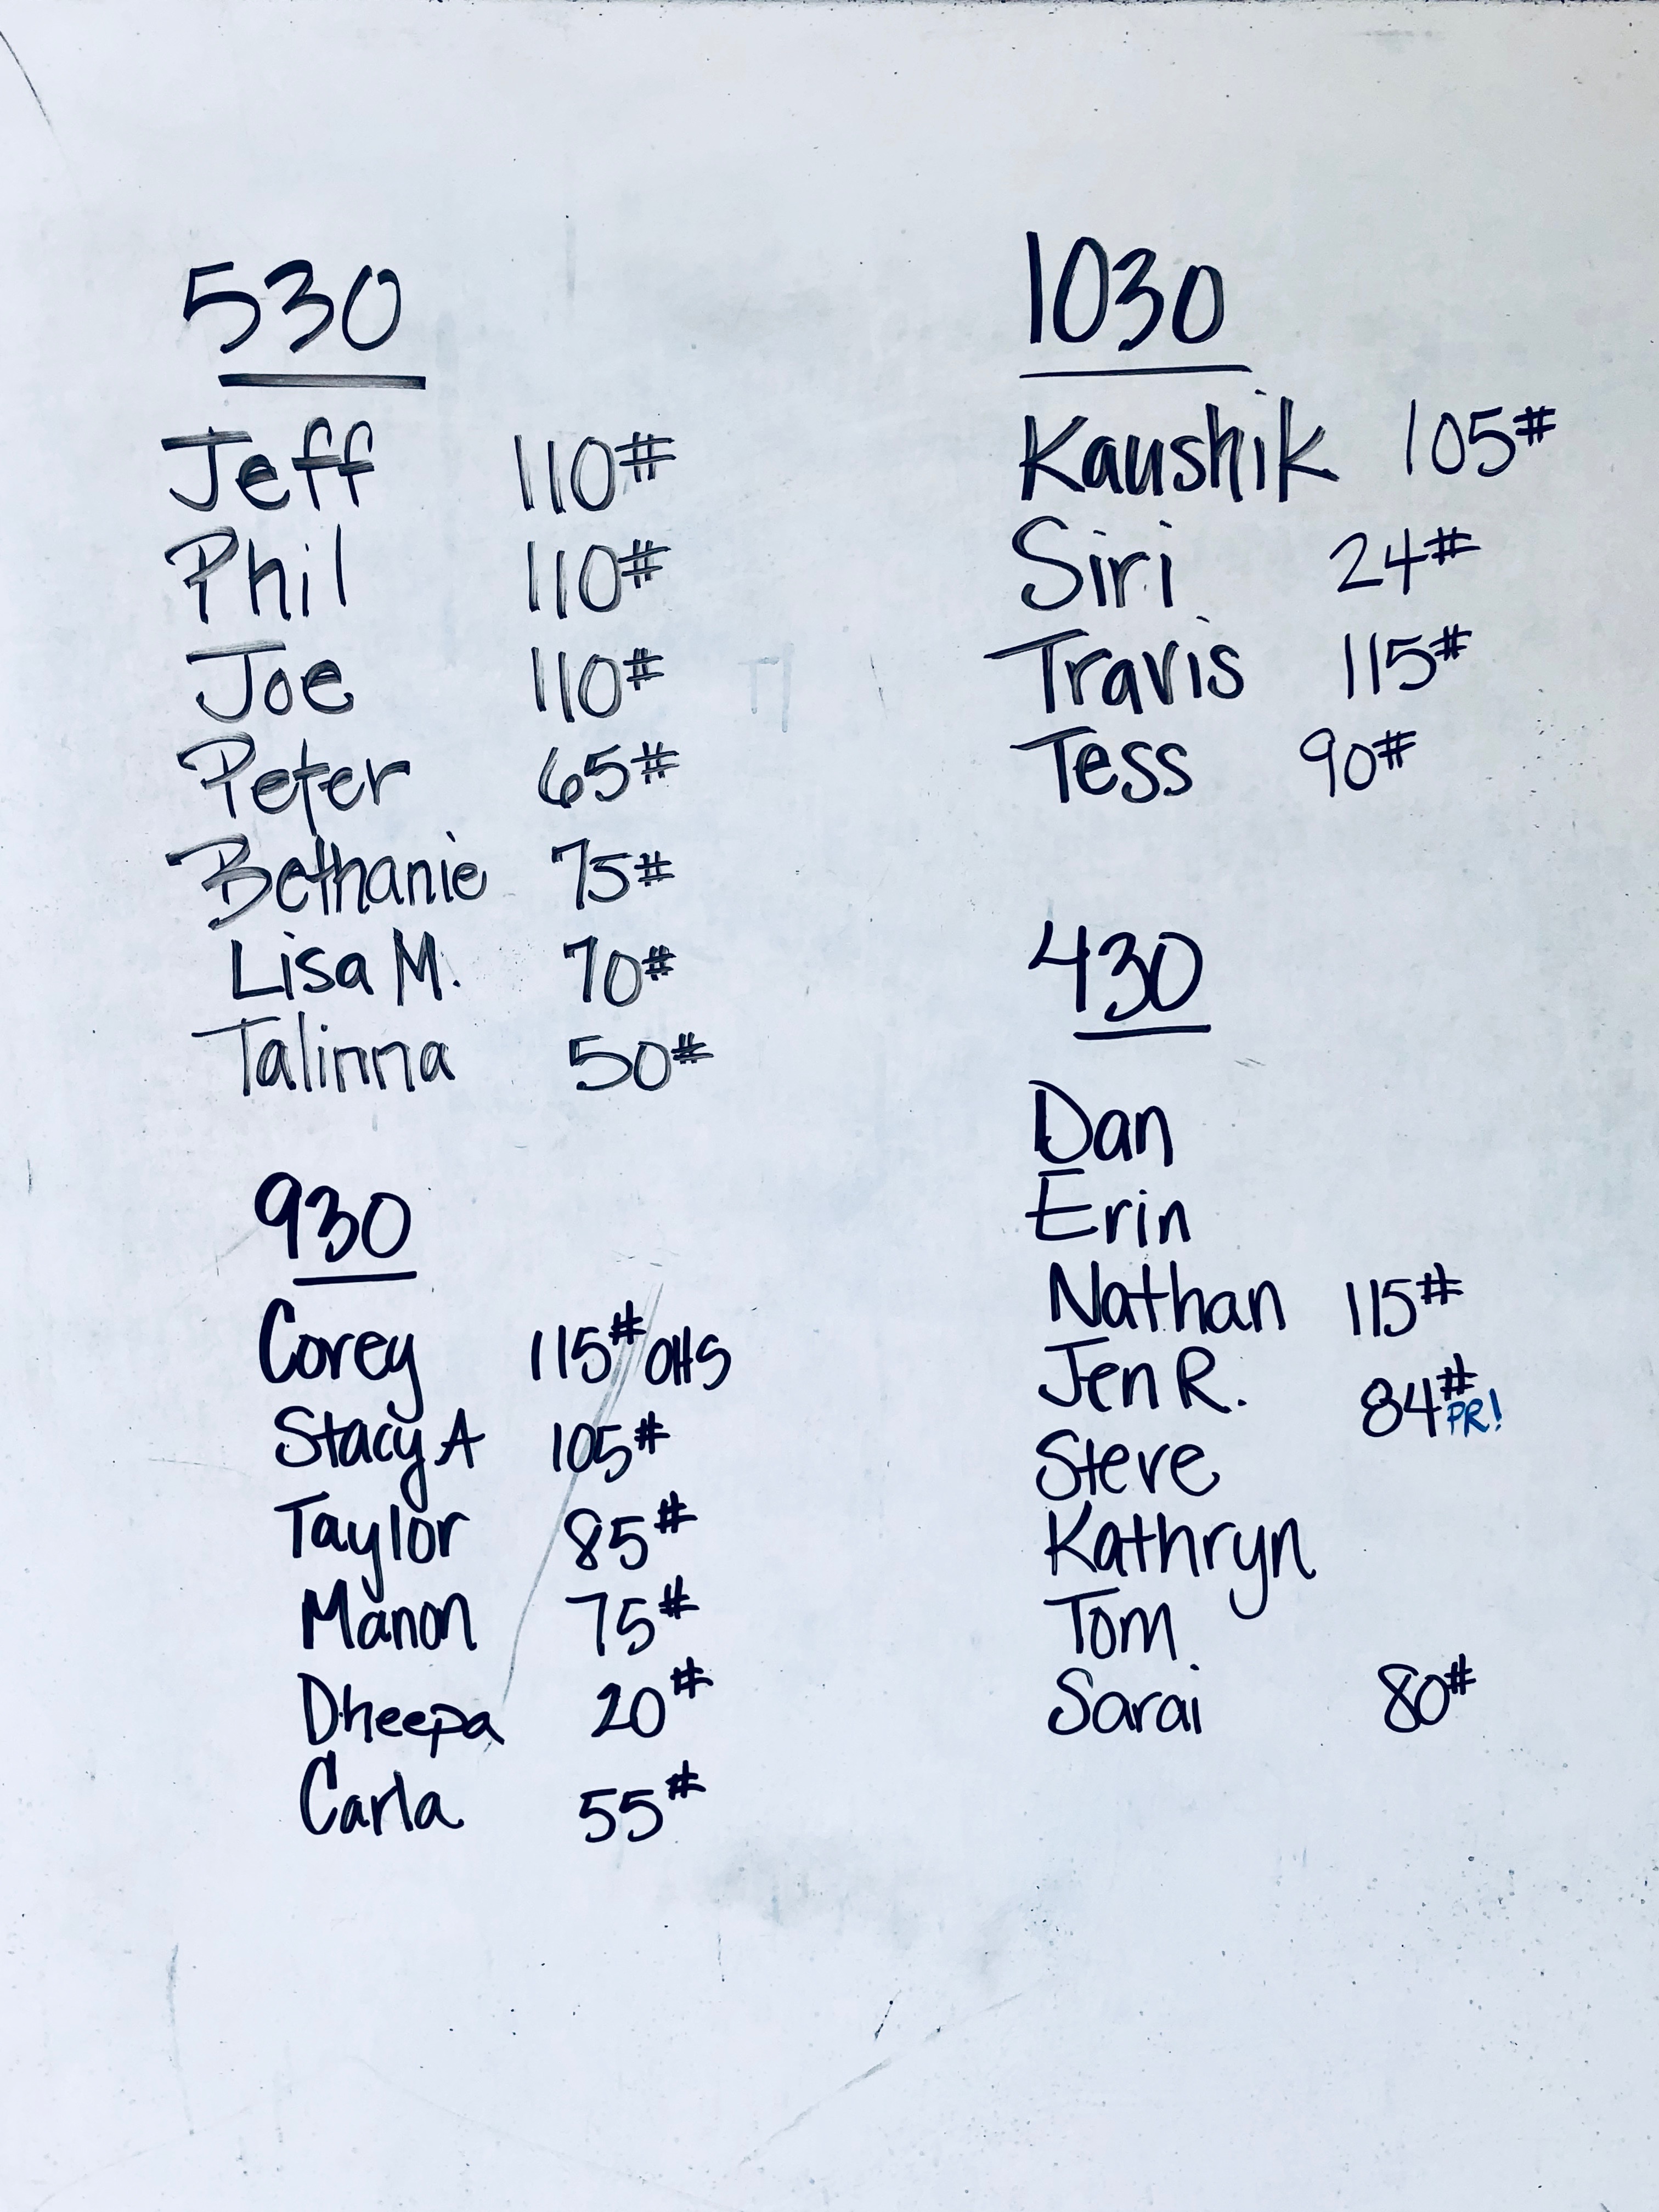 530
Jeff 110#
Phil 110#
Joe 110#
Peter 65#
Bethanie 75#
Lisa M. 70#
Talinna 50#
930
Corey 115# OHS
Stacy A 105#
Taylor 85#
Manon 75#
Dheepa 20#
Carla 55#
1030
Kaushik 105#
Siri 24#
Travis 115#
Tess 90#
430
Dan
Erin
Nathan 115#
Jen R. 84# PR!
Steve
Kathryn
Tom
Sarai 80#